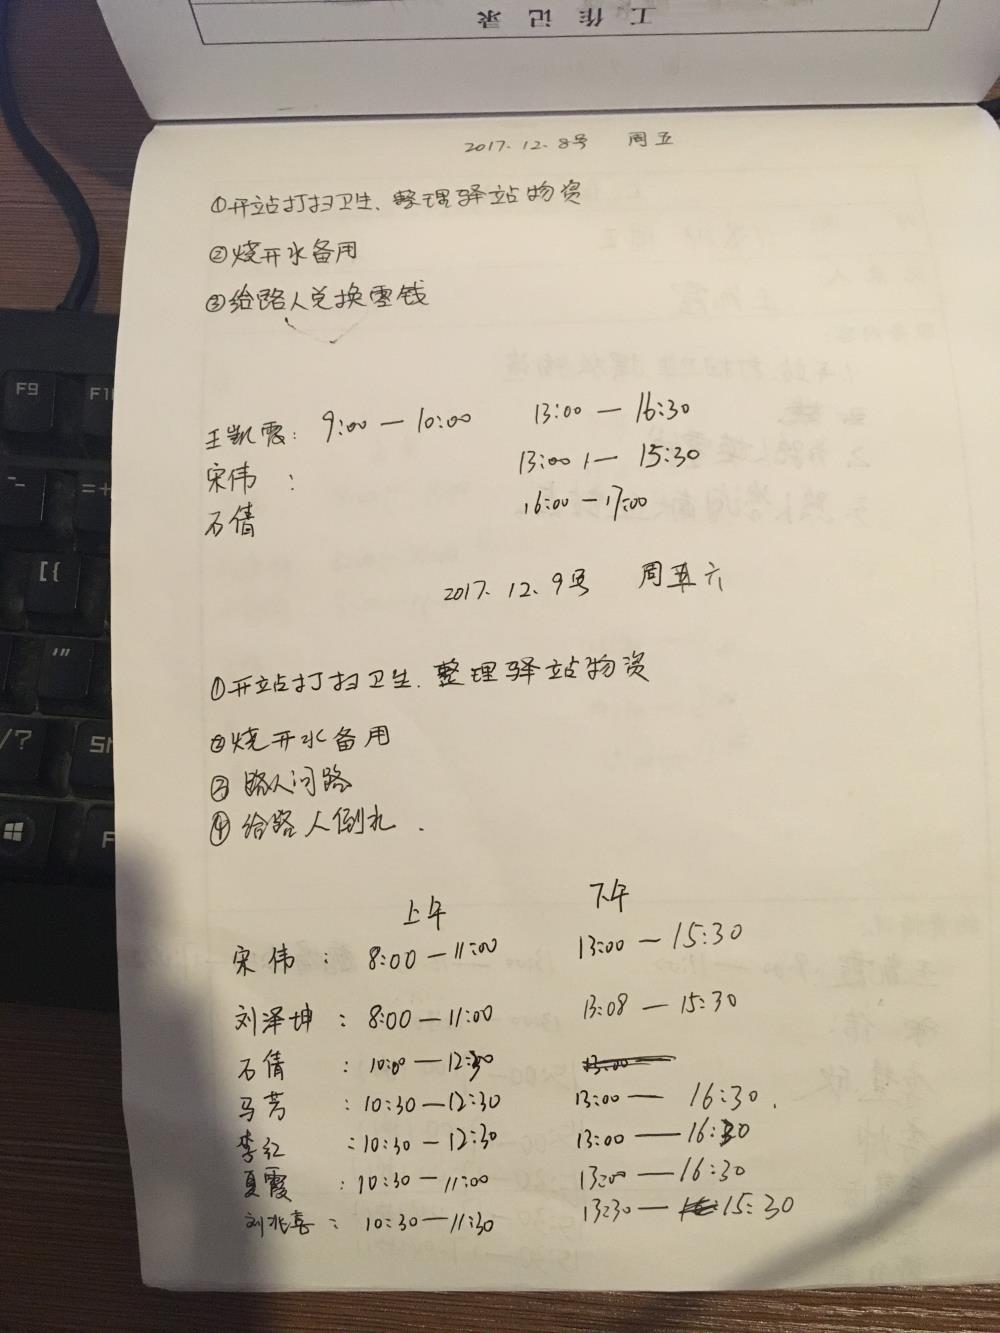 工作记录
2017.12.8号 周五
①开站打扫卫生、整理驿站物资
②烧开水备用
③给路人兑换零钱
王凯霞: 9:00—10:00 13:00—16:30
宋伟: 13:00—15:30
石倩 16:00—17:00
2017.12.9号 周六
①开站打扫卫生.整理驿站物资
②烧开水备用
③路人问路
④给路人倒水.
上午 下午
宋伟: 8:00—11:00 13:00—15:30
刘泽坤: 8:00—11:00 13:08—15:30
石倩: 10:00—12:30
马芳: 10:30—12:30 13:00—16:30.
李红: 10:30-12:30 13:00—16:30
夏霞: 10:30—11:00 13:00—16:30
刘兆喜: 10:30—11:30 13:30—15:30
F9
F1
-
=+
[{
'"
/?